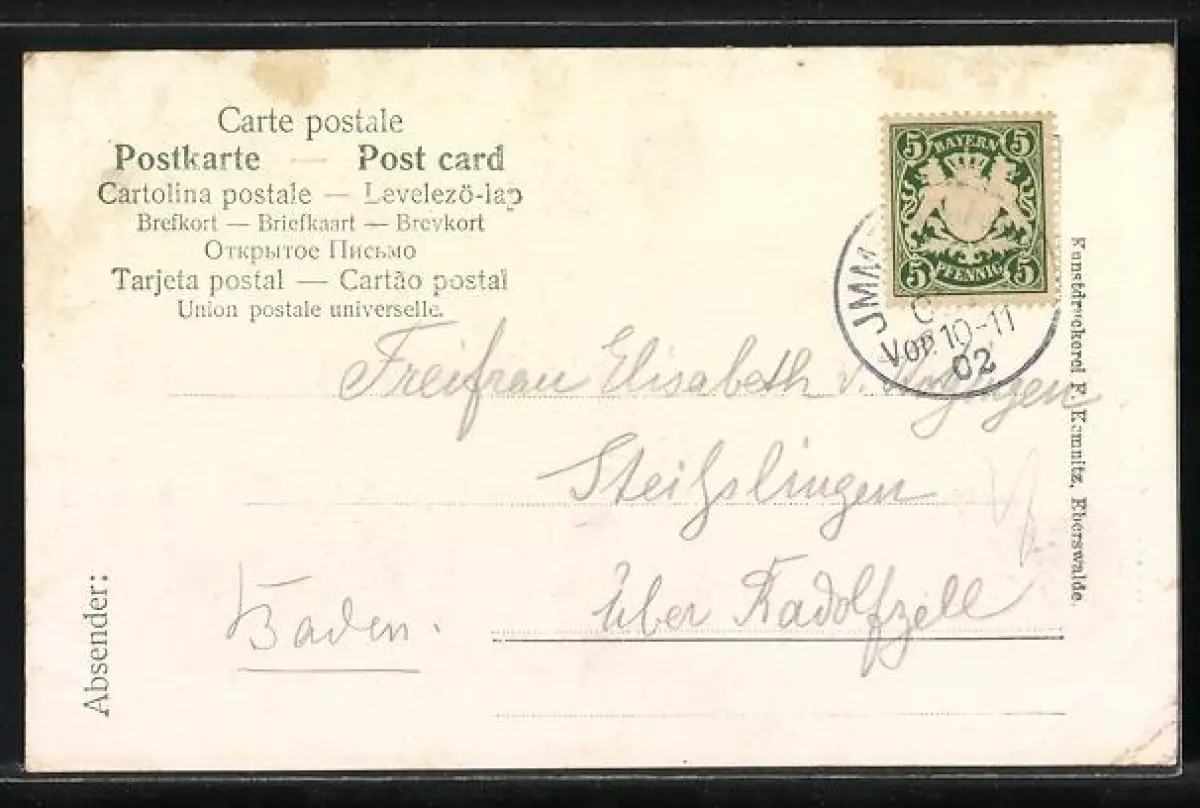 Carte postale
Postkarte — Post card
Cartolina postale — Levelező-lap
Brefkort — Briefkaart — Brevkort
Открытое Письмо
Tarjeta postal — Cartão postal
Union postale universelle.
5 BAYERN 5
5 PFENNIG 5
Vor. 10-11
02
Freifrau Elisabeth v.
Steißlingen
über Radolfzell
Baden.
Absender:
Kunstdruckerei F. Kemnitz, Eberswalde.